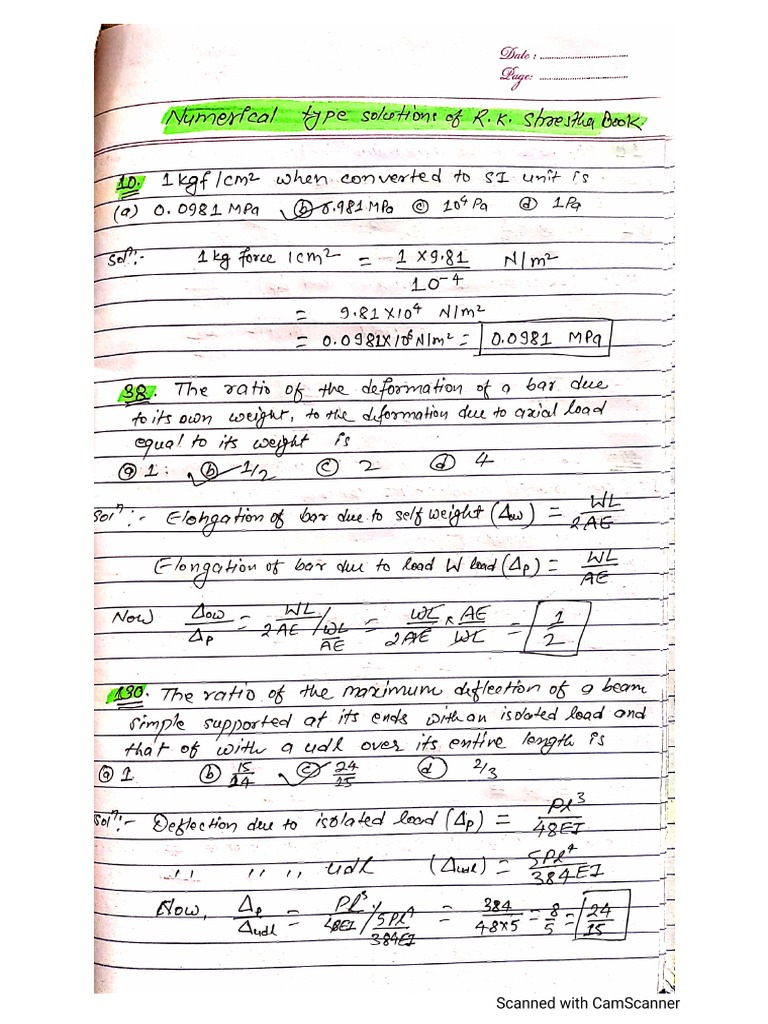 Date : ..............................
Page: ..............................
Numerical type solutions of R.K. Shrestha Book
10. 1 kgf /cm² when converted to SI unit is
(a) 0.0981 MPa (b) 0.981 MPa (c) 10⁴ Pa (d) 1 Pa
Solⁿ:- 1 kg force / cm² = 1 × 9.81 / 10⁻⁴ N/m²
= 9.81 × 10⁴ N/m²
= 0.0981 × 10⁶ N/m² = 0.0981 MPa
38. The ratio of the deformation of a bar due
to its own weight, to the deformation due to axial load
equal to its weight is
(a) 1: (b) 1/2 (c) 2 (d) 4
Solⁿ:- Elongation of bar due to self weight (Δow) = WL / 2AE
Elongation of bar due to load W load (Δp) = WL / AE
Now Δow / Δp = WL / 2AE / WL / AE = WL / 2AE × AE / WL = 1 / 2
130. The ratio of the maximum deflection of a beam
simple supported at its ends with an isolated load and
that of with a udl over its entire length is
(a) 1 (b) 15/14 (c) 24/15 (d) 2/3
Solⁿ:- Deflection due to isolated load (Δp) = Pl³ / 48EI
,, ,, ,, udl (Δudl) = 5Pl⁴ / 384EI
Now, Δp / Δudl = Pl³ / 48EI / 5Pl⁴ / 384EI = 384 / 48×5 = 8/5 = 24/15
Scanned with CamScanner